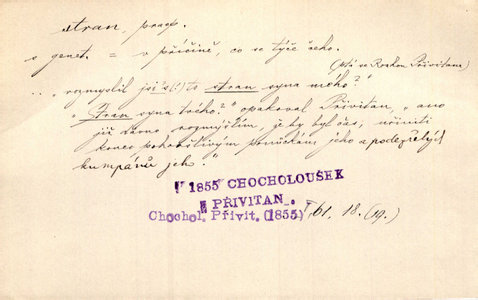 stran, praep.
s genet. = v příčině, co se týče čeho.
(ptá se Roxkon Přivitana)
„rozmyslil jsi's (!) to stran syna mého?"
„Stran syna tvého?" opakoval Přivitan, „ano
již dávno rozmýšlím, je by byl čas, učiniti
konec pokrbtlivým jeho a podezřelých
kumpánů jeh."
1855 CHOCHOLOUŠEK
PŘIVITAN.
Chochol. Přivit. (1855) I, 61. 18. (19.)